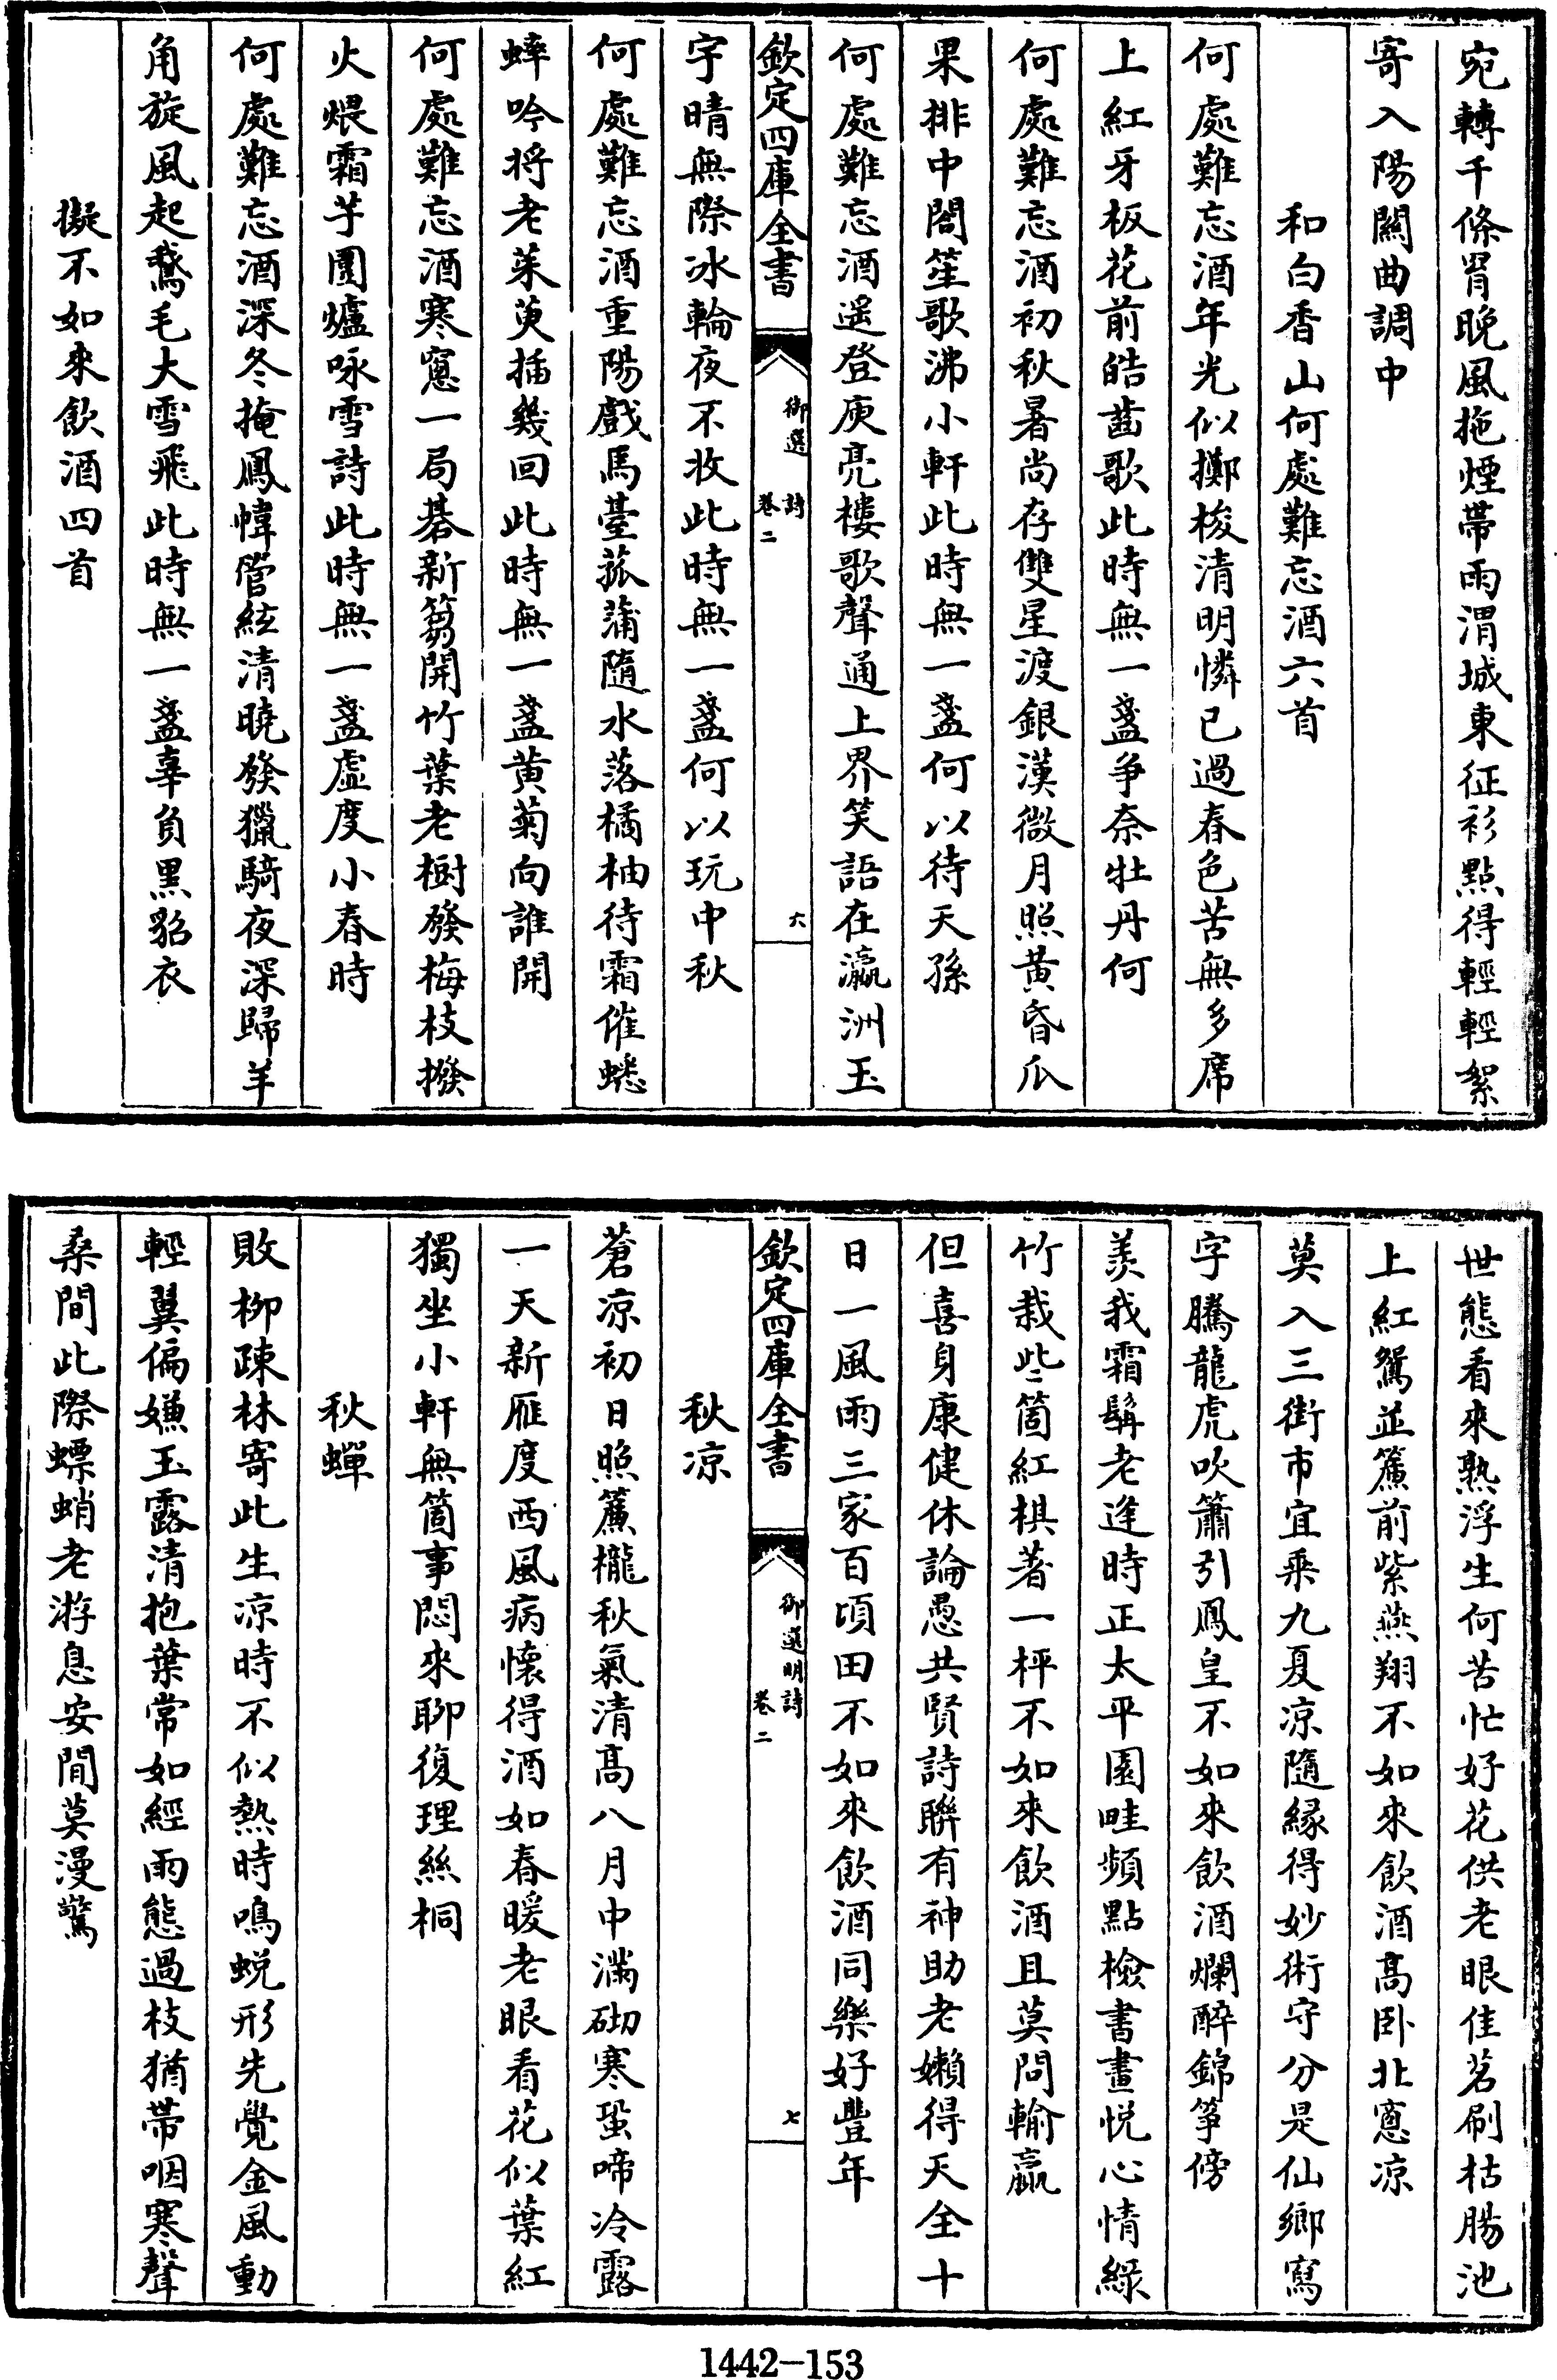 宛轉千條胃晚風拖煙帶雨渭城東征衫點得輕輕絮
寄入陽關曲調中
和白香山何處難忘酒六首
何處難忘酒年光似擲梭清明憐已過春色苦無多席
上紅牙板花前皓齒歌此時無一盞爭奈牡丹何
何處難忘酒初秋暑尚存雙星渡銀漢微月照黃昏瓜
果排中閣笙歌沸小軒此時無一盞何以待天孫
何處難忘酒遥登庾亮樓歌聲通上界笑語在瀛洲玉
欽定四庫全書
御選 詩
卷二
六
宇晴無際冰輪夜不收此時無一盞何以玩中秋
何處難忘酒重陽戲馬臺菰蒲隨水落橘柚待霜催蟋
蟀吟将老茱萸插幾回此時無一盞黄菊向誰開
何處難忘酒寒窻一局棊新篘開竹葉老樹發梅枝撥
火煨霜芋圍爐咏雪詩此時無一盞虛度小春時
何處難忘酒深冬掩鳳幃管絃清曉發獵騎夜深歸羊
角旋風起鵞毛大雪飛此時無一盞辜負黑貂衣
擬不如來飲酒四首
世態看來熟浮生何苦忙好花供老眼佳茗刷枯腸池
上紅鴛並簾前紫燕翔不如來飲酒髙卧北窻凉
莫入三街市宜乘九夏凉隨緣得妙術守分是仙鄉寫
字騰龍虎吹簫引鳳皇不如來飲酒爛醉錦筝傍
羡我霜鬅老逢時正太平園畦頻點檢書畫悅心情緑
竹栽些箇紅棋著一枰不如來飲酒且莫問輸贏
但喜身康健休論愚共賢詩聯有神助老嬾得天全十
日一風雨三家百頃田不如來飲酒同樂好豐年
欽定四庫全書
御選明詩
卷二
七
秋凉
蒼凉初日照簾櫳秋氣清髙八月中滿砌寒蛩啼冷露
一天新雁度西風病懷得酒如春暖老眼看花似葉紅
獨坐小軒無箇事悶來聊復理絲桐
秋蟬
敗柳疎林寄此生凉時不似熱時鳴蜕形先覺金風動
輕翼偏嫌玉露清抱葉常如經雨態過枝猶帶咽寒聲
桑間此際螵蛸老游息安閒莫漫驚
1442—153